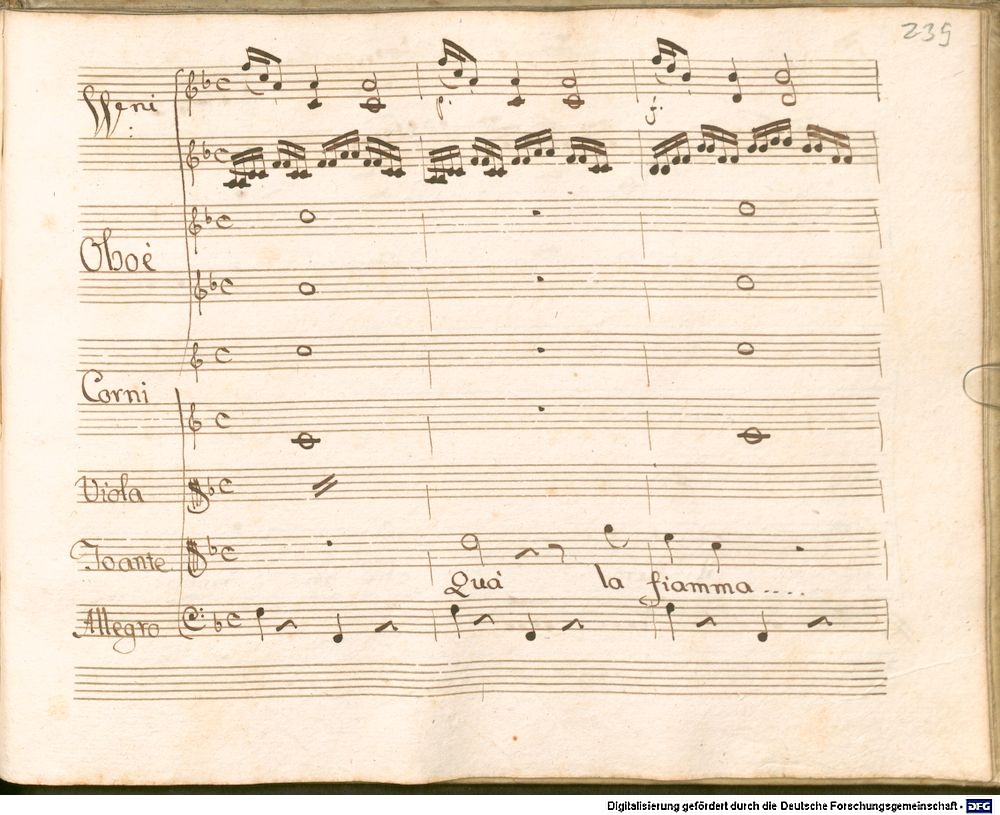 239
VVeni
p.
f.
Oboè
Corni
Viola
Toante
Quà la fiamma....
Allegro
Digitalisierung gefördert durch die Deutsche Forschungsgemeinschaft - DFG